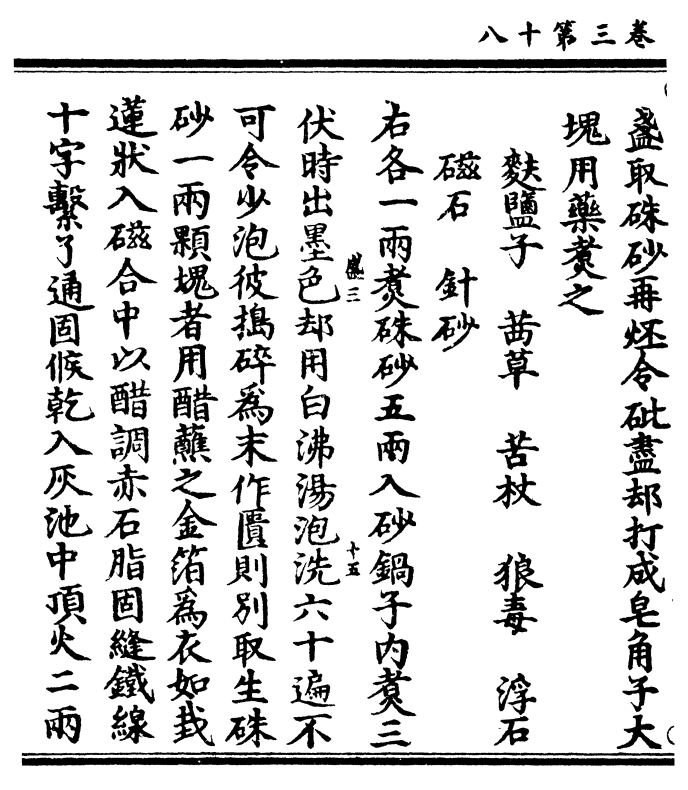 卷三第十八
盞取硃砂再炒令砒盡却打成皂角子大
塊用藥煑之
麩鹽子 茜草 苦杖 狼毒 浮石
磁石 針砂
右各一兩煑硃砂五兩入砂鍋子内煑三
伏時出墨色却用白沸湯泡洗六十遍不
盛三
十五
可令少泡彼搗碎爲末作匱則别取生硃
砂一兩顆塊者用醋蘸之金箔爲衣如戟
蓮狀入磁合中以醋調赤石脂固縫鐵線
十字繫了通固候乾入灰池中頂火二兩